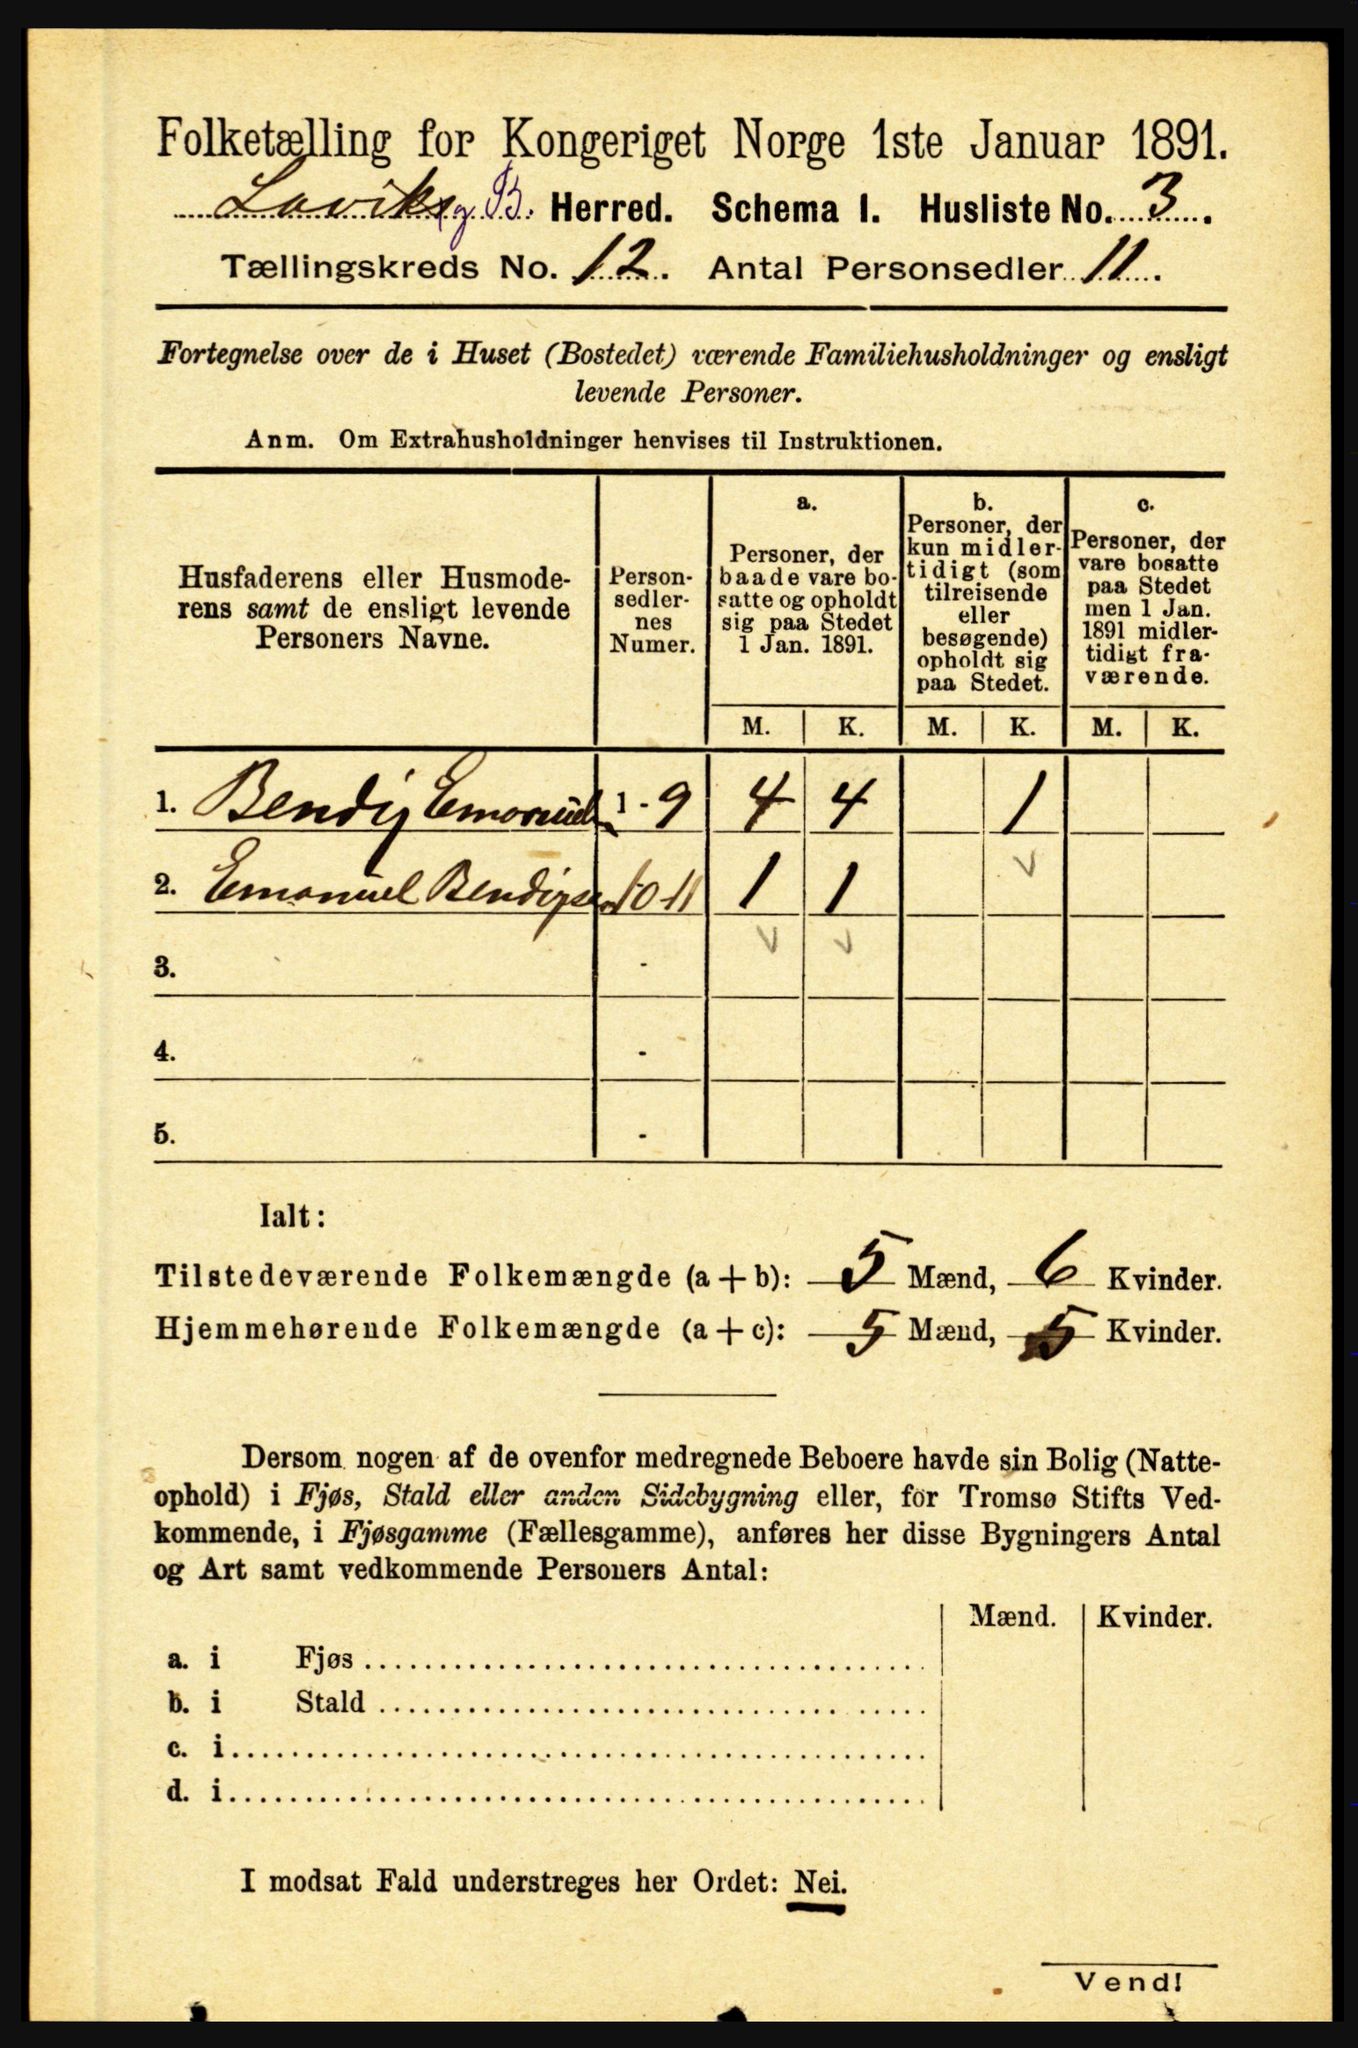 Folketælling for Kongeriget Norge 1ste Januar 1891.
Laviks og B. Herred. Schema I. Husliste No. 3.
Tællingskreds No. 12. Antal Personsedler 11.
Fortegnelse over de i Huset (Bostedet) værende Familiehusholdninger og ensligt
levende Personer.
Anm. Om Extrahusholdninger henvises til Instruktionen.
Husfaderens eller Husmode-
rens samt de ensligt levende
Personers Navne.
Person-
sedler-
nes
Numer.
a.
Personer, der
baade vare bo-
satte og opholdt
sig paa Stedet
1 Jan. 1891.
b.
Personer, der
kun midler-
tidigt (som
tilreisende
eller
besøgende)
opholdt sig
paa Stedet.
c.
Personer, der
vare bosatte
paa Stedet
men 1 Jan.
1891 midler-
tidigt fra-
værende.
M. K. M. K. M. K.
1. Bendix Emanuels 1 - 9 4 4 1
2. Emanuel Bendixsen 10-11 1 1
3. -
4. -
5. -
Ialt:
Tilstedeværende Folkemængde (a + b): 5 Mænd, 6 Kvinder.
Hjemmehørende Folkemængde (a + c): 5 Mænd, 5 Kvinder.
Dersom nogen af de ovenfor medregnede Beboere havde sin Bolig (Natte-
ophold) i Fjøs, Stald eller anden Sidebygning eller, for Tromsø Stifts Ved-
kommende, i Fjøsgamme (Fællesgamme), anføres her disse Bygningers Antal
og Art samt vedkommende Personers Antal:
Mænd. Kvinder.
a. i Fjøs
b. i Stald
c. i
d. i
I modsat Fald understreges her Ordet: Nei.
Vend!